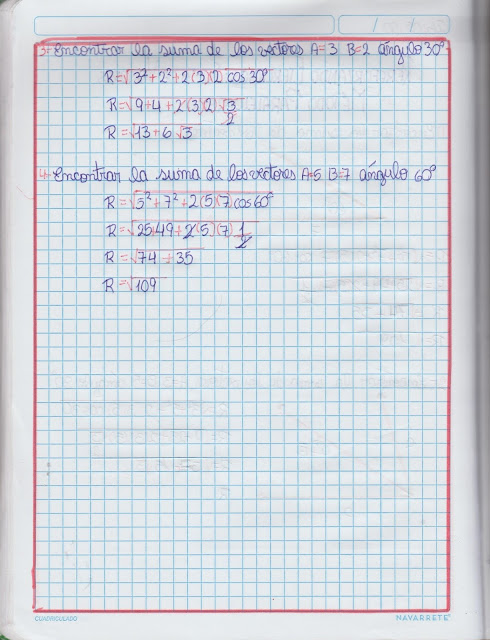 3- Encontrar la suma de los vectores A=3 B=2 ángulo 30º
R=√3²+2²+2(3)(2) cos 30º
R=√9+4+2(3)2 √3/2
R=√13+6√3
4- Encontrar la suma de los vectores A=5 B=7 ángulo 60º
R=√5²+7²+2(5)(7) cos 60º
R=√25+49+2(5)(7) 1/2
R=√74+35
R=√109
CUADRICULADO
NAVARRETE